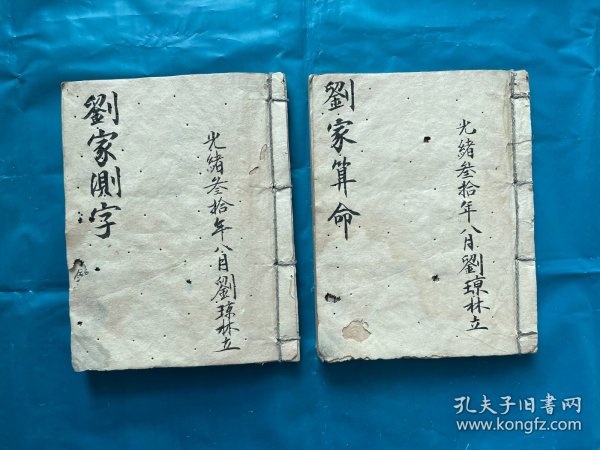 劉家測字
光緒叄拾年八月劉琼林立
劉家算命
光緒叄拾年八月劉琼林立
孔夫子旧书网
www.kongfz.com